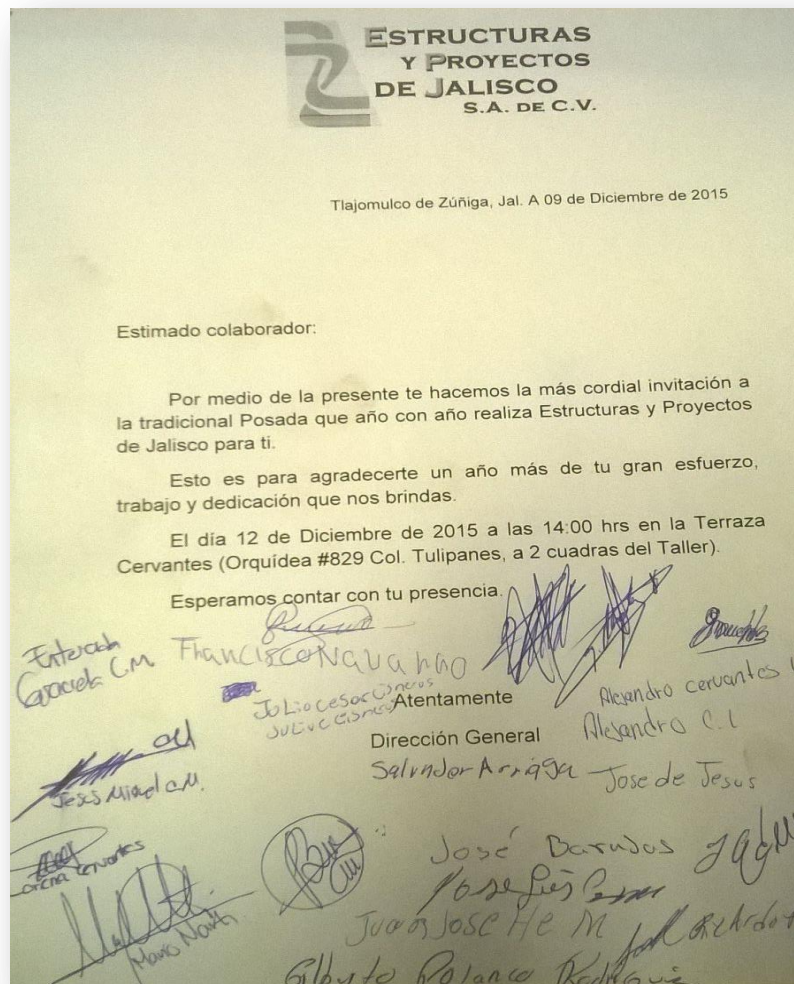 ESTRUCTURAS
Y PROYECTOS
DE JALISCO
S.A. DE C.V.
Tlajomulco de Zúñiga, Jal. A 09 de Diciembre de 2015
Estimado colaborador:
Por medio de la presente te hacemos la más cordial invitación a
la tradicional Posada que año con año realiza Estructuras y Proyectos
de Jalisco para ti.
Esto es para agradecerte un año más de tu gran esfuerzo,
trabajo y dedicación que nos brindas.
El día 12 de Diciembre de 2015 a las 14:00 hrs en la Terraza
Cervantes (Orquídea #829 Col. Tulipanes, a 2 cuadras del Taller).
Esperamos contar con tu presencia.
Enterada
C.M.
Francisco Navarro
Julio cesar Cisneros
Julio c Cisneros
Atentamente
Alejandro cervantes
Alejandro C. L
Dirección General
Salvador Arriaga
Jose de Jesus
C.M.
José Barajas
cervantes
Jose Luis
Mario
Juan Jose He M
Ricardo
Gilberto Polanco